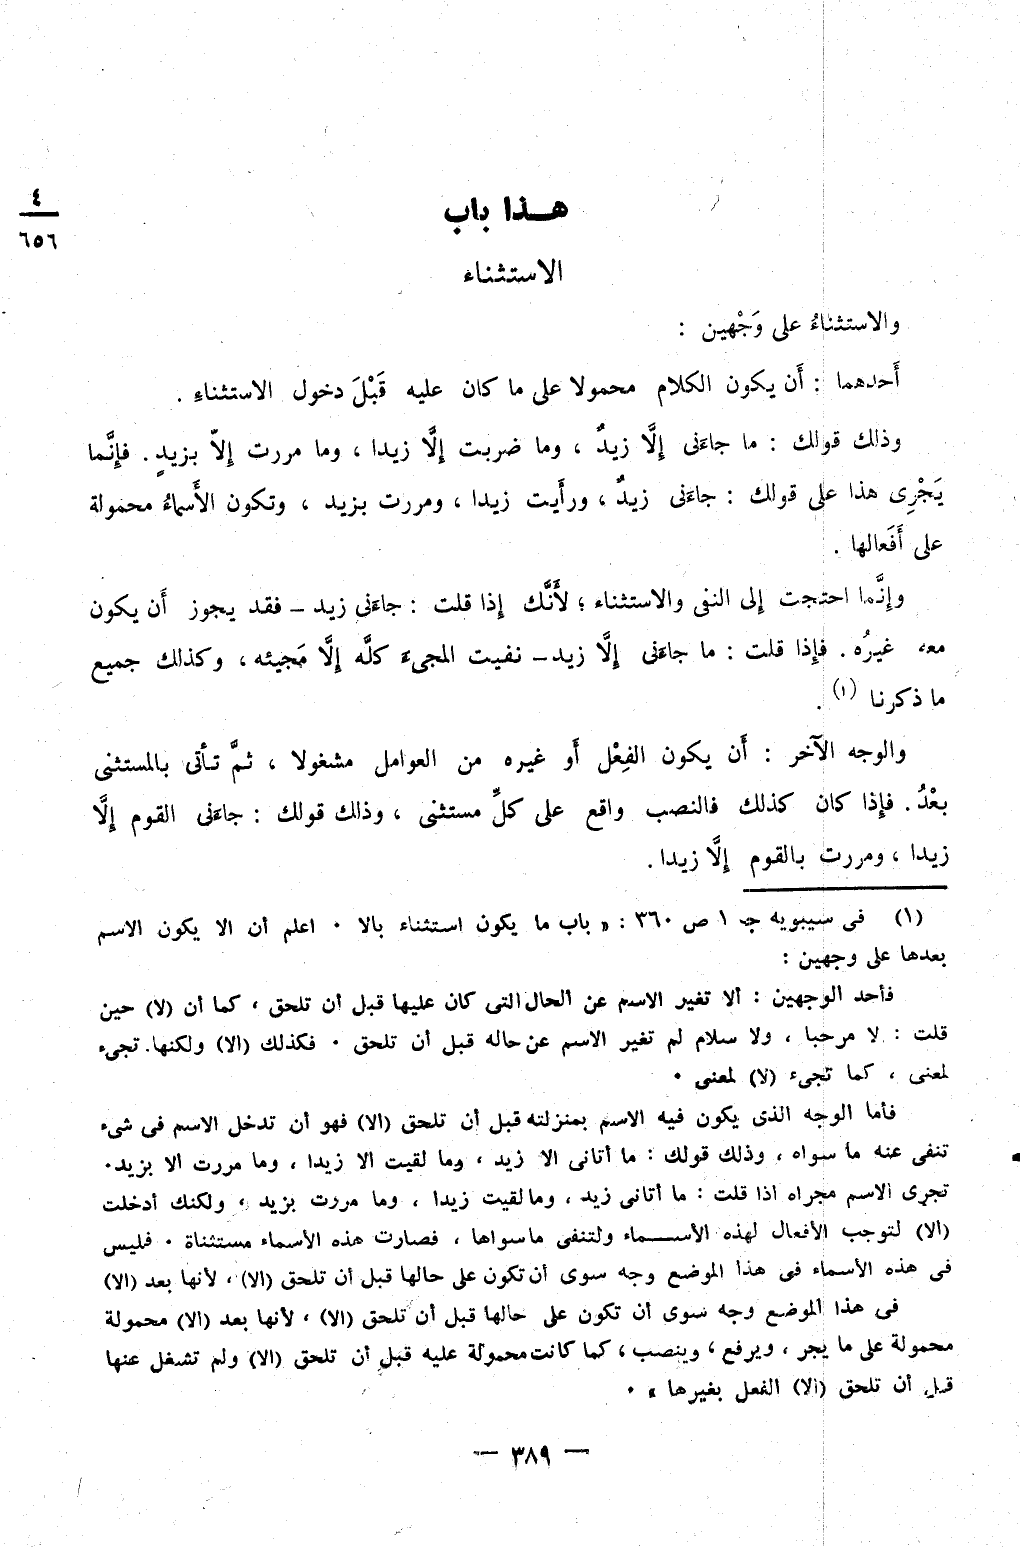 ٤
٦٥٦
هـــذا باب
الاستثناء
والاستثناءُ على وَجْهين :
أَحدهما : أَن يكون الكلام محمولا على ما كان عليه قَبْلَ دخول الاستثناءِ .
وذلك قولك : ما جاءَنى إِلَّا زيدٌ ، وما ضربت إِلَّا زيدا ، وما مررت إِلاّ بزيدٍ . فإِنَّما
يَجْرِى هذا على قولك : جاءَنى زيدٌ ، ورأَيت زيدا ، ومررت بزيد ، وتكون الأَسماءُ محمولة
على أَفَعالها .
وإِنَّما احتجت إِلى النفى والاستثناء ؛ لأَنَّك إِذا قلت : جاءَنى زيد – فقد يجوز أَن يكون
معه غيرُه . فإِذا قلت : ما جاءَنى إِلَّا زيد – نفيت المجىءَ كلَّه إِلَّا مَجيئه ، وكذلك جميع
ما ذكرنا (١) .
والوجه الآخر : أَن يكون الفِعْل أَو غيره من العوامل مشغولا ، ثمَّ تأتى بالمستثنى
بعْدُ . فإِذا كان كذلك فالنصب واقع على كلِّ مستثنى ، وذلك قولك : جاءَنى القوم إِلَّا
زيدا ، ومررت بالقوم إِلَّا زيدا .
(١) فى سيبويه ج ١ ص ٣٦٠ : « باب ما يكون استثناء بالا ٠ اعلم أن الا يكون الاسم
بعدها على وجهين :
فأحد الوجهين : ألا تغير الاسم عن الحال التى كان عليها قبل أن تلحق ، كما أن (لا) حين
قلت : لا مرحبا ، ولا سلام لم تغير الاسم عن حاله قبل أن تلحق ٠ فكذلك (الا) ولكنها. تجىء
لمعنى ، كما تجىء (لا) لمعنى ٠
فأما الوجه الذى يكون فيه الاسم بمنزلته قبل أن تلحق (الا) فهو أن تدخل الاسم فى شىء
تنفى عنه ما سواه ، وذلك قولك : ما أتانى الا زيد ، وما لقيت الا زيدا ، وما مررت الا بزيد٠
تجرى الاسم مجراه اذا قلت : ما أتانى زيد ، وما لقيت زيدا ، وما مررت بزيد ، ولكنك أدخلت
(الا) لتوجب الأفعال لهذه الأســــماء ولتنفى ما سواها ، فصارت هذه الأسماء مستثناة ٠ فليس
فى هذه الأسماء فى هذا الموضع وجه سوى أن تكون على حالها قبل أن تلحق (الا) ، لأنها بعد (الا)
فى هذا الموضع وجه سوى أن تكون على حالها قبل أن تلحق (الا) ، لأنها بعد (الا) محمولة
محمولة على ما يجر ، ويرفع ، وينصب ، كما كانت محمولة عليه قبل أن تلحق (الا) ولم تشغل عنها
قبل أن تلحق (الا) الفعل بغيرها » ٠
— ٣٨٩ —